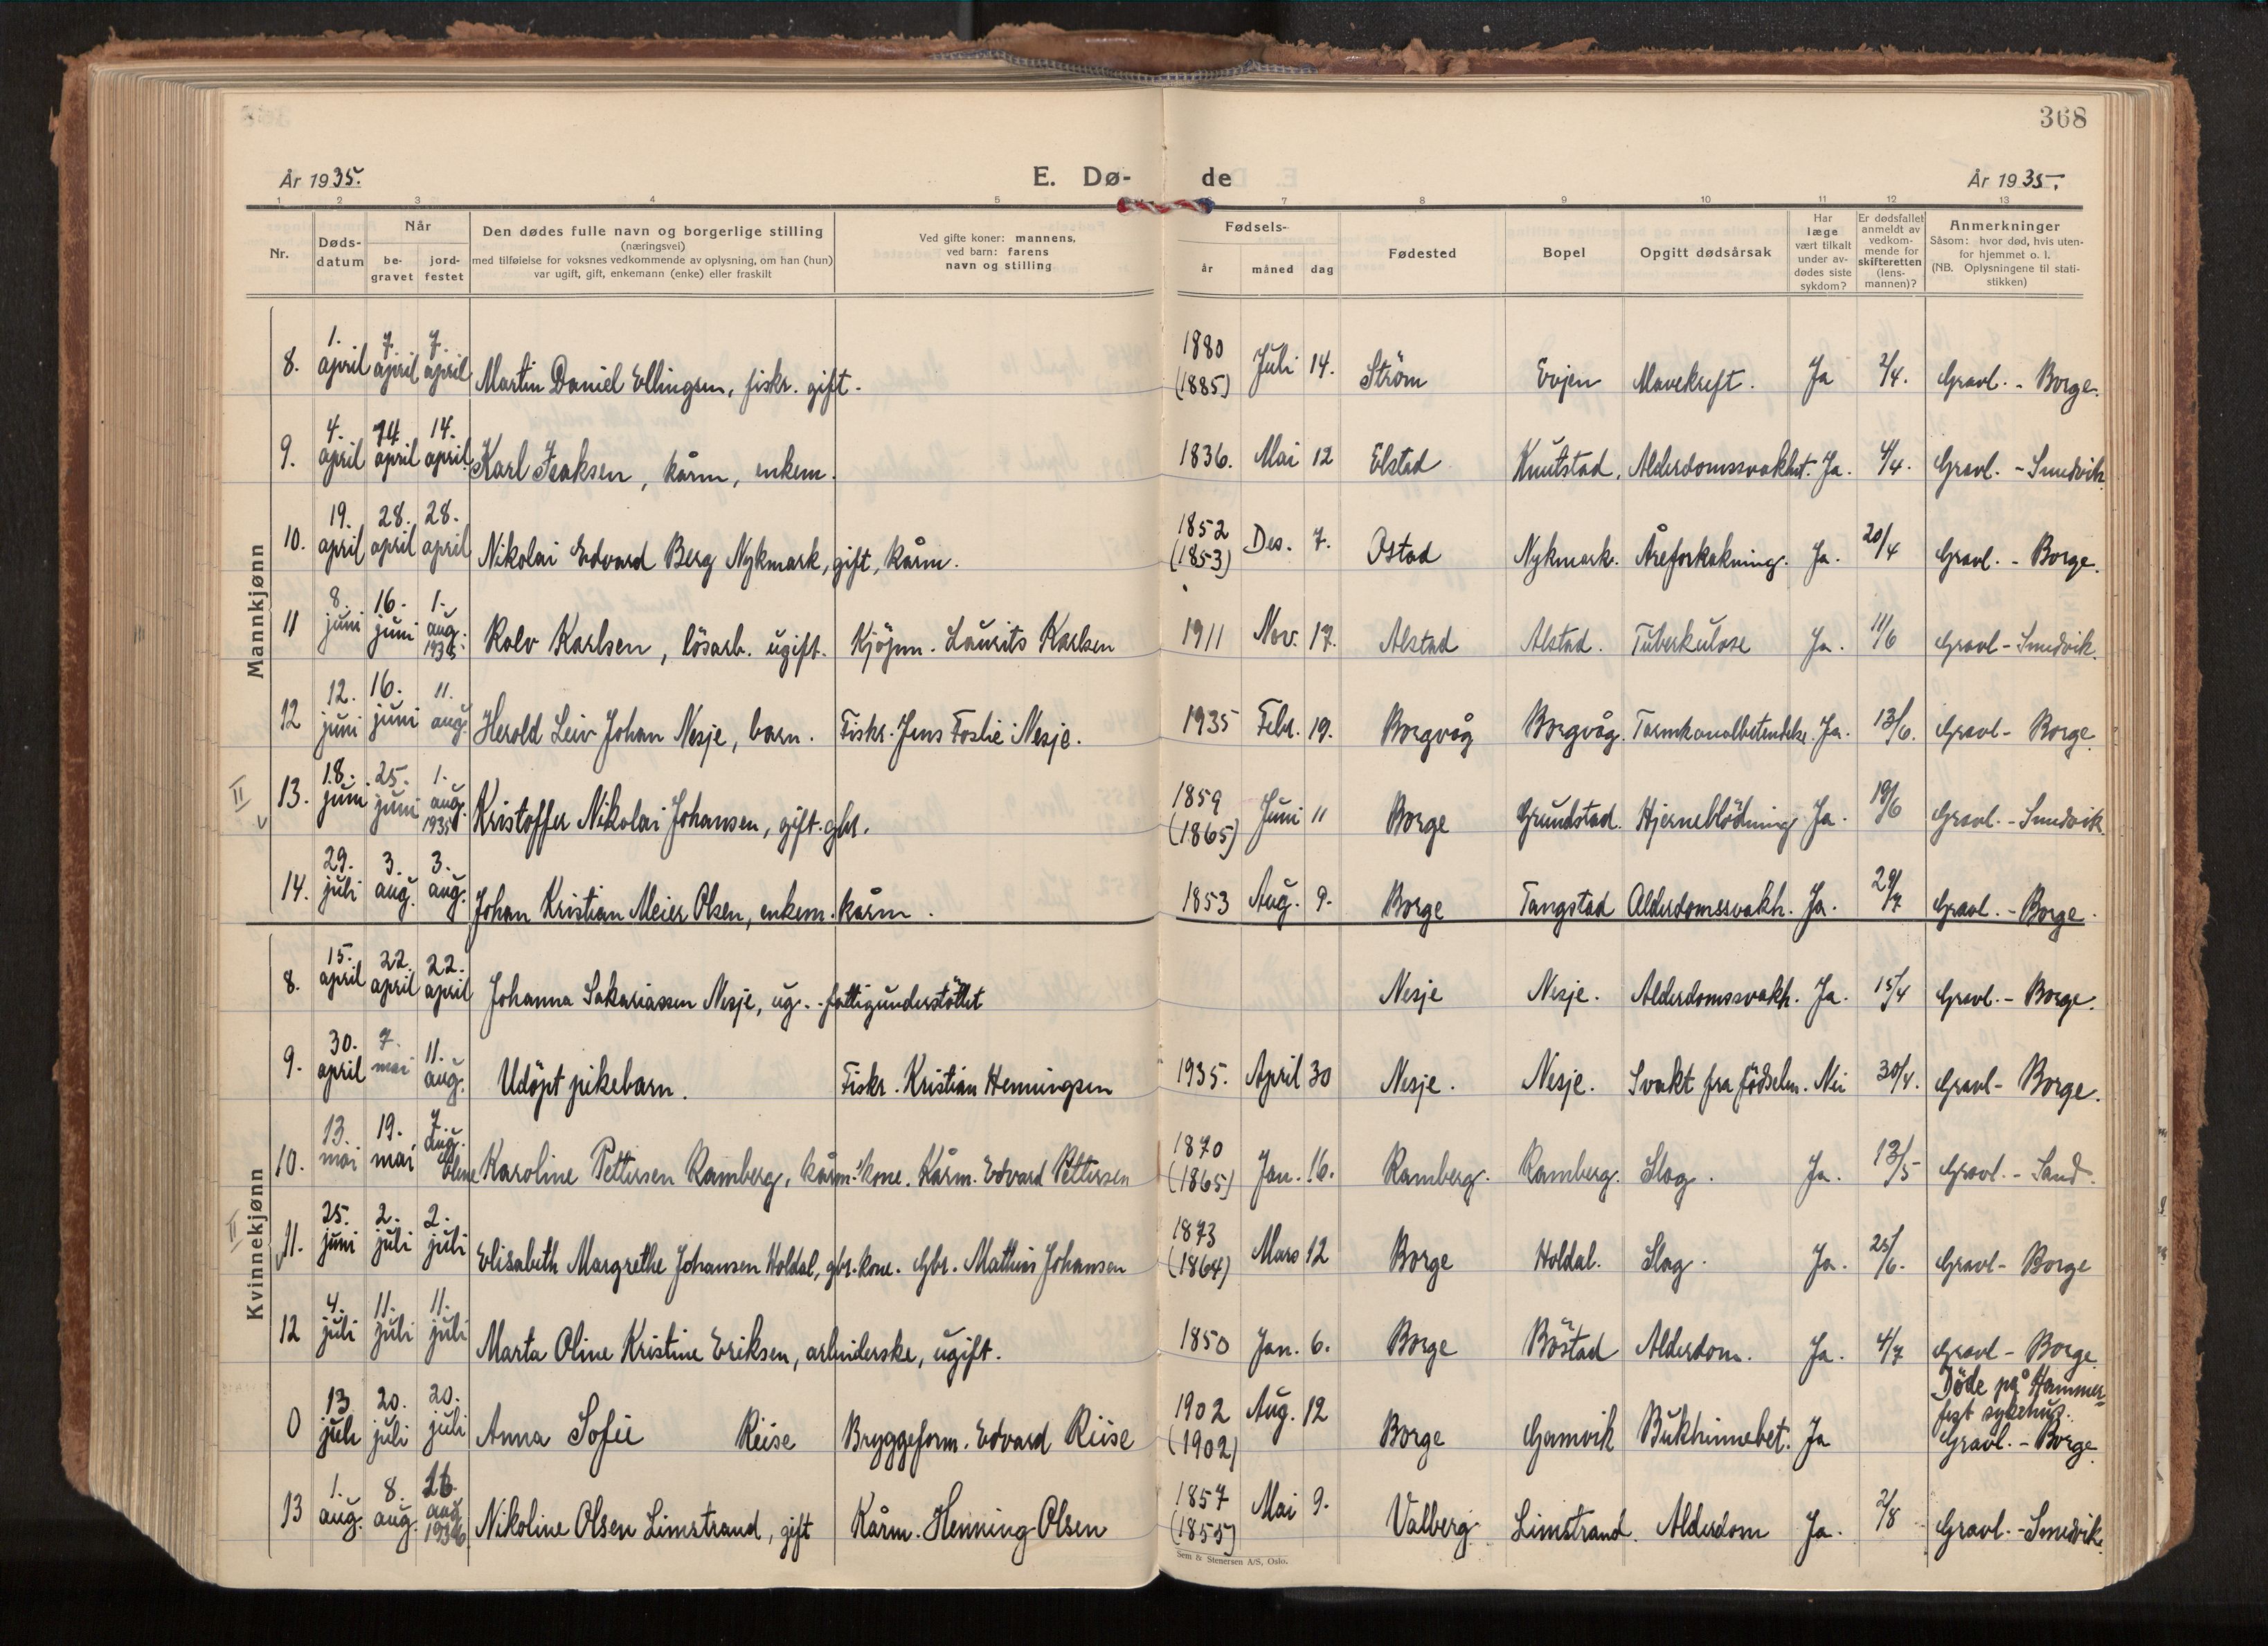 368
År 1935.
E. Dø-
de
År 1935.
1 2 3 4 5 7 8 9 10 11 12 13
Nr.
Døds-
datum
Når
be-
gravet
jord-
festet
Den dødes fulle navn og borgerlige stilling
(næringsvei)
med tilføielse for voksnes vedkommende av oplysning, om han (hun)
var ugift, gift, enkemann (enke) eller fraskilt
Ved gifte koner: mannens,
ved barn: farens
navn og stilling
Fødsels-
år måned dag
Fødested
Bopel
Opgitt dødsårsak
Har
læge
vært tilkalt
under av-
dødes siste
sykdom?
Er dødsfallet
anmeldt av
vedkom-
mende for
skifteretten
(lens-
mannen)?
Anmerkninger
Såsom: hvor død, hvis uten-
for hjemmet o. l.
(NB. Oplysningene til stati-
stikken)
Mannkjønn
8. 1. april 7. april 7. april Martin Daniel Ellingsen, fiskr. gift. 1880 (1885) Juli 14. Ström Evjen Mavekreft. Ja 2/4. Gravl. - Borge.
9. 4. april 14. april 14. april Karl Isaksen, kårm, enkem. 1836. Mai 12 Elstad Knutstad. Alderdomssvakhet. Ja. 4/4. Gravl. - Smedvik
10. 19. april 28. april 28. april Nikolai Edvard Berg Nykmark, gift, kårm. 1852 (1853) Des. 7. Ostad Nykmark. Åreforkakning. Ja. 20/4 Gravl. - Borge.
11 8. juni 16. juni 1. aug. Rolv Karlsen, lösarb. ugift. Kjöpm. Laurits Karlsen 1911 Nov. 17. Alstad Alstad. Tuberkulose Ja. 11/6 Gravl - Smedvik.
12 12. juni 16. juni 11. aug. Herold Leiv Johan Nesje, barn. Fiskr. Jens Foslie Nesje. 1935 Febr. 19. Borgvåg Borgvåg. Tarmkanalbetendelse. Ja. 13/6. Gravl - Borge.
II
13. 18. juni 25. juni 1. aug. 1935 Kristoffer Nikolai Johansen, gift. gbr. 1859 (1865) Juni 11 Borge Grundstad. Hjerneblödning Ja. 19/6 Gravl. - Smedvik
14. 29. juli 3. aug. 3. aug. Johan Kristian Meier Olsen, enkem. kårm. 1853 Aug. 9. Borge Tangstad Alderdomssvakh. Ja. 29/7 Gravl. - Borge.
Kvinnekjønn
8. 15. april 22. april 22. april Johanna Sakariassen Nesje, ug. - fattigunderstöttet Nesje Nesje. Alderdomssvakh. Ja. 15/4 Gravl. - Borge.
9. 30. april 7. mai 11. aug. Udöpt pikebarn. Fiskr. Kristian Henningsen 1935. April 30 Nesje. Nesje. Svakt fra födselen. Nei 30/4. Gravl - Borge.
10. 13. mai 19. mai 7. aug. Oline Karoline Pettersen Ramberg, kårm. kone. Kårm. Edvard Pettersen 1870 (1865) Jan. 16. Ramberg. Ramberg. Slag. Ja. 13/5 Gravl. - Sand.
II
11. 25. juni 2. juli 2. juli Elisabeth Margrethe Johansen Holdal, gbr. kone. Gbr. Mathias Johansen 1873 (1864) Mars 12 Borge Holdal. Slag. Ja. 25/6. Gravl - Borge
12 4. juli 11. juli 11. juli Marta Oline Kristine Eriksen, arbeiderske, ugift. 1850 Jan. 6. Borge Böstad Alderdom. Ja. 4/7 Gravl - Borge.
0 13 juli 20. juli 20. juli Anna Sofie Reise Bryggeform. Edvard Riise 1902 (1902) Aug. 12 Borge Gamvik Bukhinnebet. Ja Döde på Hammer-
fest sykehus.
Gravl. - Borge
13 1. aug. 8. aug. 16. aug. 1936 Nikoline Olsen Limstrand, gift Kårm. Henning Olsen 1857 (1855) Mai 9. Valberg Limstrand. Alderdom Ja. 2/8 Gravl. - Smedvik.
Sem & Stenersen A/S, Oslo.